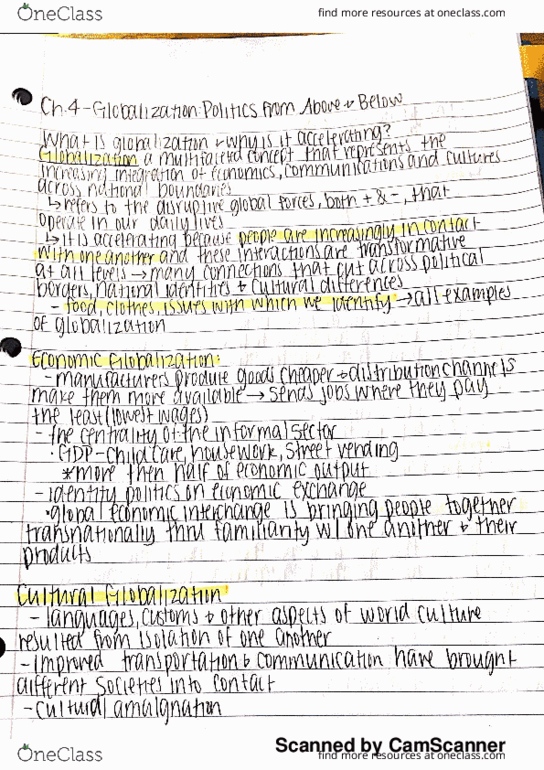 OneClass
find more resources at oneclass.com
Ch.4 - Globalization: Politics from Above & Below
What is globalization & why is it accelerating?
Globalization a multifaceted concept that represents the
increasing integration of economics, communications and cultures
across national boundaries
↳ refers to the disruptive global forces, both + & -, that
operate in our daily lives
↳ it is accelerating because people are increasingly in contact
with one another and these interactions are transformative
at all levels → many connections that cut across political
borders, national identities & cultural differences
- food, clothes, issues with which we identify → all examples
of globalization
Economic Globalization:
- manufacturers produce goods cheaper & distribution channels
make them more available → sends jobs where they pay
the least (lowest wages)
- the centrality of the informal sector
· GDP - child care, housework, street vending
*more then half of economic output
- identity politics on economic exchange
· global economic interchange is bringing people together
transnationally thru familiarity w/ one another & their
products
Cultural Globalization
- languages, customs & other aspects of world culture
resulted from isolation of one another
- improved transportation & communication have brought
different societies into contact
- cultural amalgnation
Scanned by CamScanner
OneClass
find more resources at oneclass.com